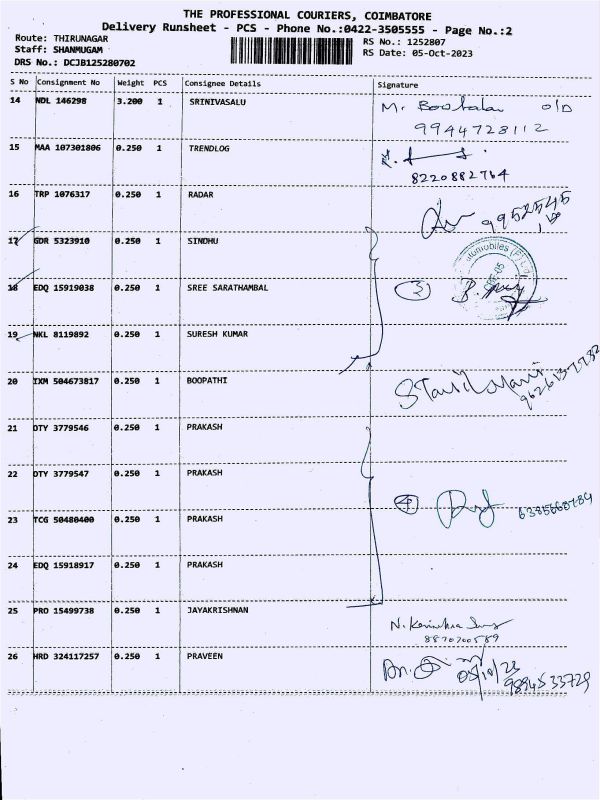 THE PROFESSIONAL COURIERS, COIMBATORE
Delivery Runsheet - PCS - Phone No.:0422-3505555 - Page No.:2
Route: THIRUNAGAR
RS No.: 1252807
Staff: SHANMUGAM
RS Date: 05-Oct-2023
DRS No.: DCJB125280702
S No Consignment No Weight PCS Consignee Details Signature
14 NDL 146298 3.200 1 SRINIVASALU M.
9944728112
15 MAA 107301806 0.250 1 TRENDLOG
8220882764
16 TRP 1076317 0.250 1 RADAR
17 GDR 5323910 0.250 1 SINDHU
18 EDQ 15919038 0.250 1 SREE SARATHAMBAL 3
19 NKL 8119892 0.250 1 SURESH KUMAR
20 IXM 504673817 0.250 1 BOOPATHI
21 OTY 3779546 0.250 1 PRAKASH
22 OTY 3779547 0.250 1 PRAKASH
4
23 TCG 50480400 0.250 1 PRAKASH
24 EDQ 15918917 0.250 1 PRAKASH
25 PRO 15499738 0.250 1 JAYAKRISHNAN N.
8870700589
26 HRD 324117257 0.250 1 PRAVEEN
05/10/23
9894533729